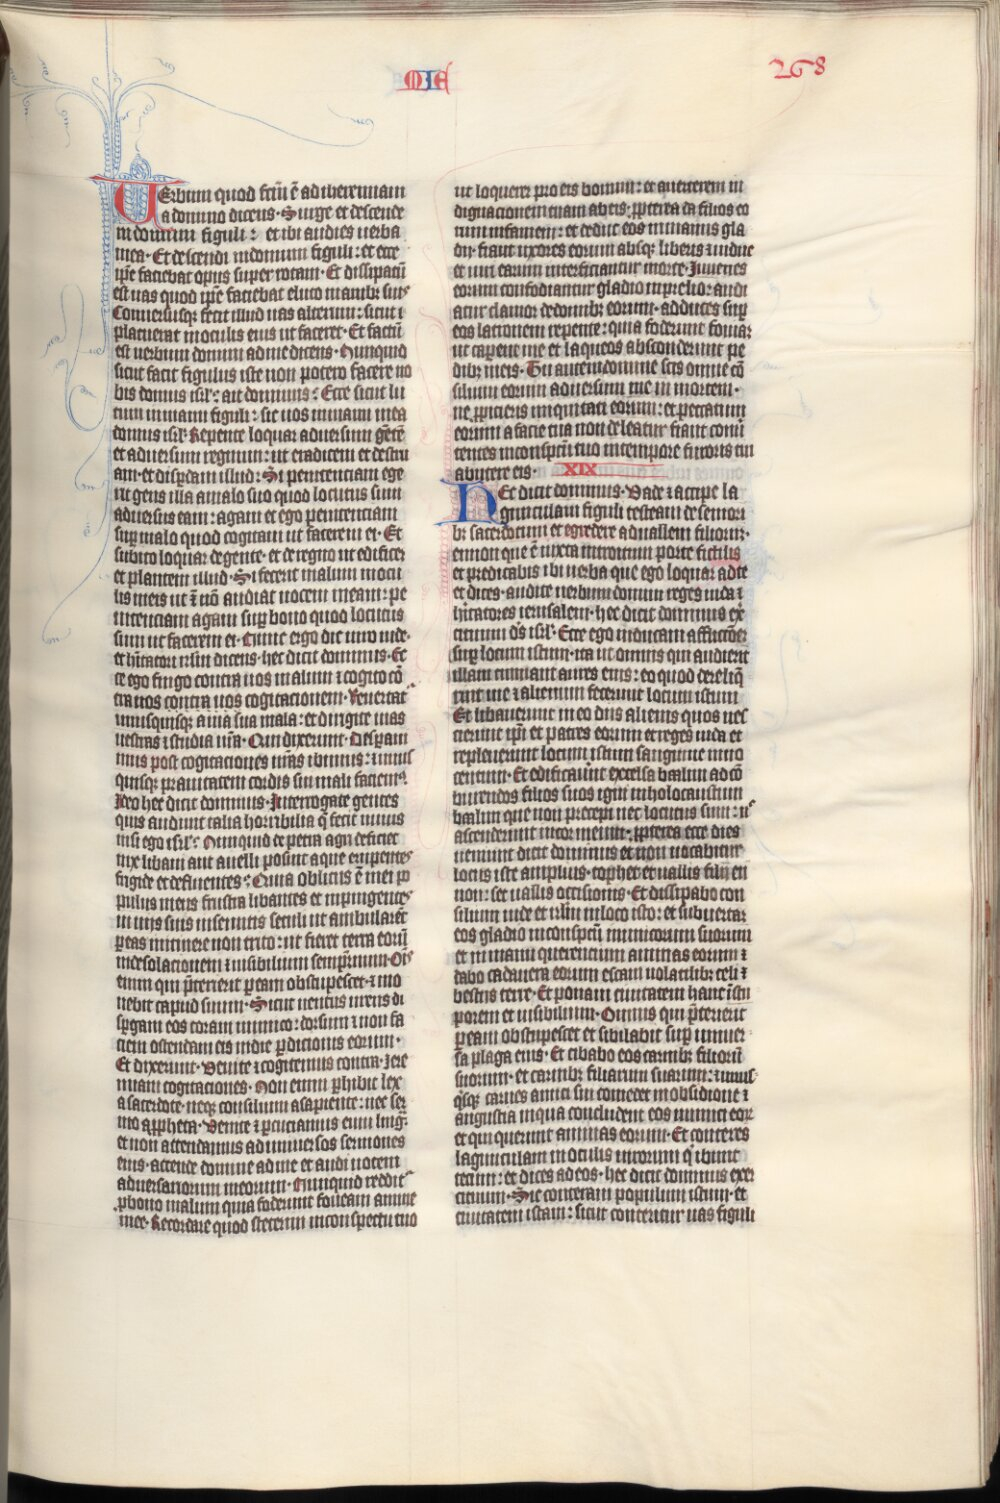 MIE
268
Verbum quod fcm̄ ē ad iheremiam
a domino dicens. Surge et descende
in domum figuli: et ibi audies uerba
mea. Et descendi in domum figuli: et ecce
ip̄e faciebat opus super rotam. Et dissipatū
est uas quod ip̄e faciebat e luto manibꝫ suis
Conuersusqꝫ fecit illud uas alterum: sicut
placuerat in oculis eius ut faceret. Et factū
est uerbum domini ad me dicens. Nunquid
sicut facit figulus iste non potero facere uo
bis domus isrl̄: ait dominus: Ecce sicut lu
tum in manu figuli: sic uos in manu mea
domus isrl̄. Repente loquar aduersum gētē
et aduersum regnum: ut eradicem et destru
am et disperdam illud. Si penitentiam ege
rit gens illa a malo suo quod locutus sum
aduersus eam: agam et ego penitentiam
sup̄ malo quod cogitaui ut facerem ei. Et
subito loquar de gente et de regno ut edificem
et plantem illud. Si fecerit malum in ocu
lis meis ut ē nō audiat uocem meam: pe
nitenciam agam sup̄ bono quod locutus
sum ut facerem ei. Nunc ergo dic uiro iude.
et hītatori irlm̄ dicens. hec dicit dominus. Ec
ce ego fingo contra uos malum ⁊ cogito cō
tra uos contra uos cogitacionem. Reuertat᷑
unusquisqꝫ a uia sua mala: et dirigite uias
uestras ⁊ studia ur̄a. Qui dixerunt. Desperaui
mus post cogitaciones nr̄as ibimus: ⁊ unus
quisqꝫ prauitatem cordis sui mali faciemꝰ.
Ideo hec dicit dominus. Interrogate gentes
quis audiuit talia horribilia q̄ fecit nimis
uirgo isrl̄: Nunquid deficiet de petra agri
nix libani aut auelli possunt aque erumpentes
frigide et defluentes: Quia oblitus ē mei po
pulus meus frustra libantes et inpingentes
in uiis suis in semitis seculi ut ambularēt
per eas in itinere non trito: ut fieret terra eorū
in desolacionem ⁊ in sibilum sempiternum. Ois̄
enim qui p̄terierit per eam obstupescet ⁊ mo
uebit capud suum. Sicut uentus urens di
spergam eos coram inimico: dorsum ⁊ non fa
ciem ostendam eis in die perdicionis eorum.
Et dixerunt. Venite ⁊ cogitemus contra Jere
miam cogitaciones. Non enim peribit lex
a sacerdote. neqꝫ consilium a sapiente: nec ser
mo a ppheta. Venite ⁊ percuciamus eum lingᷓ:
et non attendamus ad uniuersos sermones
eius. attende domine ad me et audi uocem
aduersariorum meorum. Nunquid reddit᷑
pro bono malum quia foderunt foueam anime
mee. Recordare quod steterim in conspectu tuo
ut loquerer pro eis bonum: et auerterem in
dignacionem tuam ab eis. ppterea da filios eo
rum in famem: et deduc eos in manus gla
dii. fiant uxores eorum absqꝫ liberis ⁊ uidue
et uiri earum interficiantur morte. Juuenes
eorum confodiantur gladio in prelio: audi
atur clamor de domibꝫ eorum. adduces sup̄
eos latronem repente: quia foderunt foueam
ut caperent me et laqueos absconderunt pe
dibꝫ meis. Tu autem domine scis omne cō
silium eorum aduersum me in mortem.
ne ppicieris iniquitati eorum: et peccatum
eorum a facie tua non deleatur fiant corru
entes in conspectu tuo in tempore furoris tui
abutere eis. XIX
Hec dicit dominus. Vade ⁊ accipe la
gunculam figuli testeam de seniori
bꝫ sacerdotum et egredere ad uallem filiorum
ennon que ē iuxta introitum porte fictilis
et predicabis ibi uerba que ego loquar ad te
et dices. audite uerbum domini reges iuda ⁊
hītatores ierusalem. hec dicit dominus ex̄
cituum ds̄ isrl̄. Ecce ego inducam afflictiōem
sup̄ locum istum. ita ut omnis qui audierit
illam tinniant aures eius: eo quod dereliq̄
runt me ⁊ alienum fecerunt locum istum
Et libauerunt in eo diis alienis quos nes
cierunt ipi̅ et patres eorum et reges iuda et
repleuerunt locum istum sanguine inno
centum. Et edificauūt excelsa baalim ad cō
burendos filios suos igni in holocaustum
baalim que non precepi nec locutus sum: nc̄
ascenderunt in cor meum. ppterea ecce dies
ueniunt dicit dominus et non uocabitur
locus iste amplius. tophet et uallis filij en
non: set uallis occisionis. Et dissipabo con
silium iude et irlm̄ in loco isto: et subuertam
eos gladio in conspectū inimicorum suorum
et in manu querencium animas eorum ⁊
dabo cadauera eorum escam uolatilibꝫ celi ⁊
bestiis terre. Et ponam ciuitatem hanc ī stu
porem et in sibilum. Omnis qui p̄terierit
per eam obstupescet et sibilabit sup̄ uniuer
sa plaga eius. Et cibabo eos carnibꝫ filiorū
suorum. et carnibꝫ filiarum suarum: ⁊ unus
qsqꝫ carnes amici sui comedet in obsidione ⁊
angustia in qua concludent eos inimici eoꝝ
et qui querunt animas eorum. Et conteres
lagunculam in oculis uirorum q̄ ibunt
tecum: et dices ad eos. hec dicit dominus exer
cituum. Sic conteram populum istum. et
ciuitatem istam: sicut conteritur uas figuli